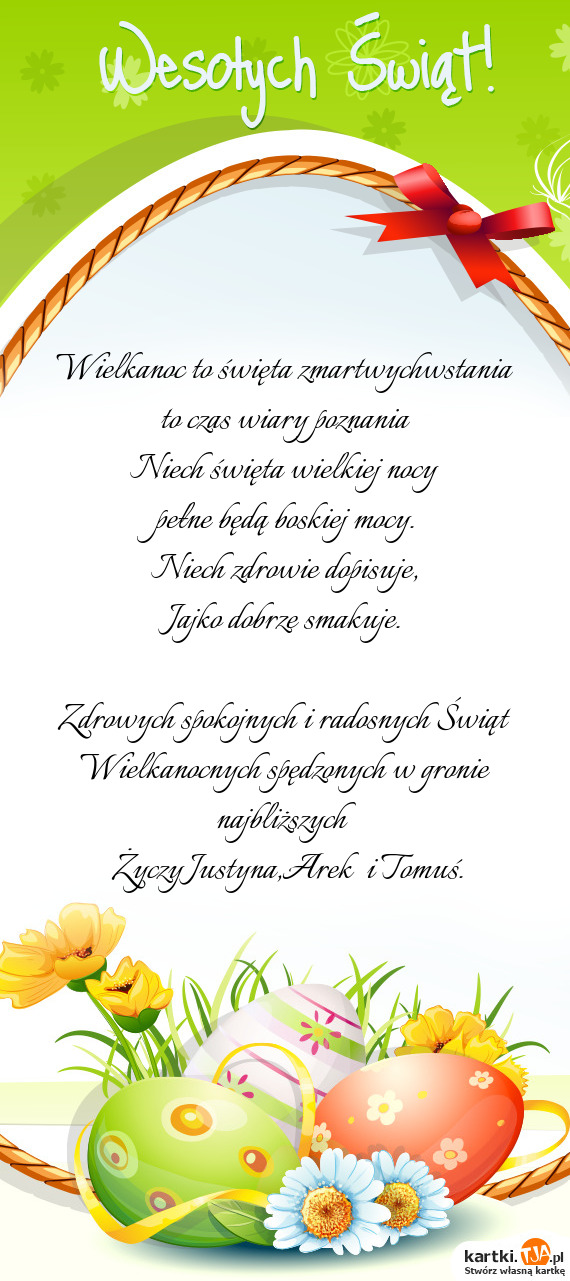 Wesołych Świąt!
Wielkanoc to święta zmartwychwstania
to czas wiary poznania
Niech święta wielkiej nocy
pełne będą boskiej mocy.
Niech zdrowie dopisuje,
Jajko dobrze smakuje.
Zdrowych spokojnych i radosnych Świąt
Wielkanocnych spędzonych w gronie
najbliższych
Życzy Justyna,Arek i Tomuś.
kartki.TJA.pl
Stwórz własną kartkę